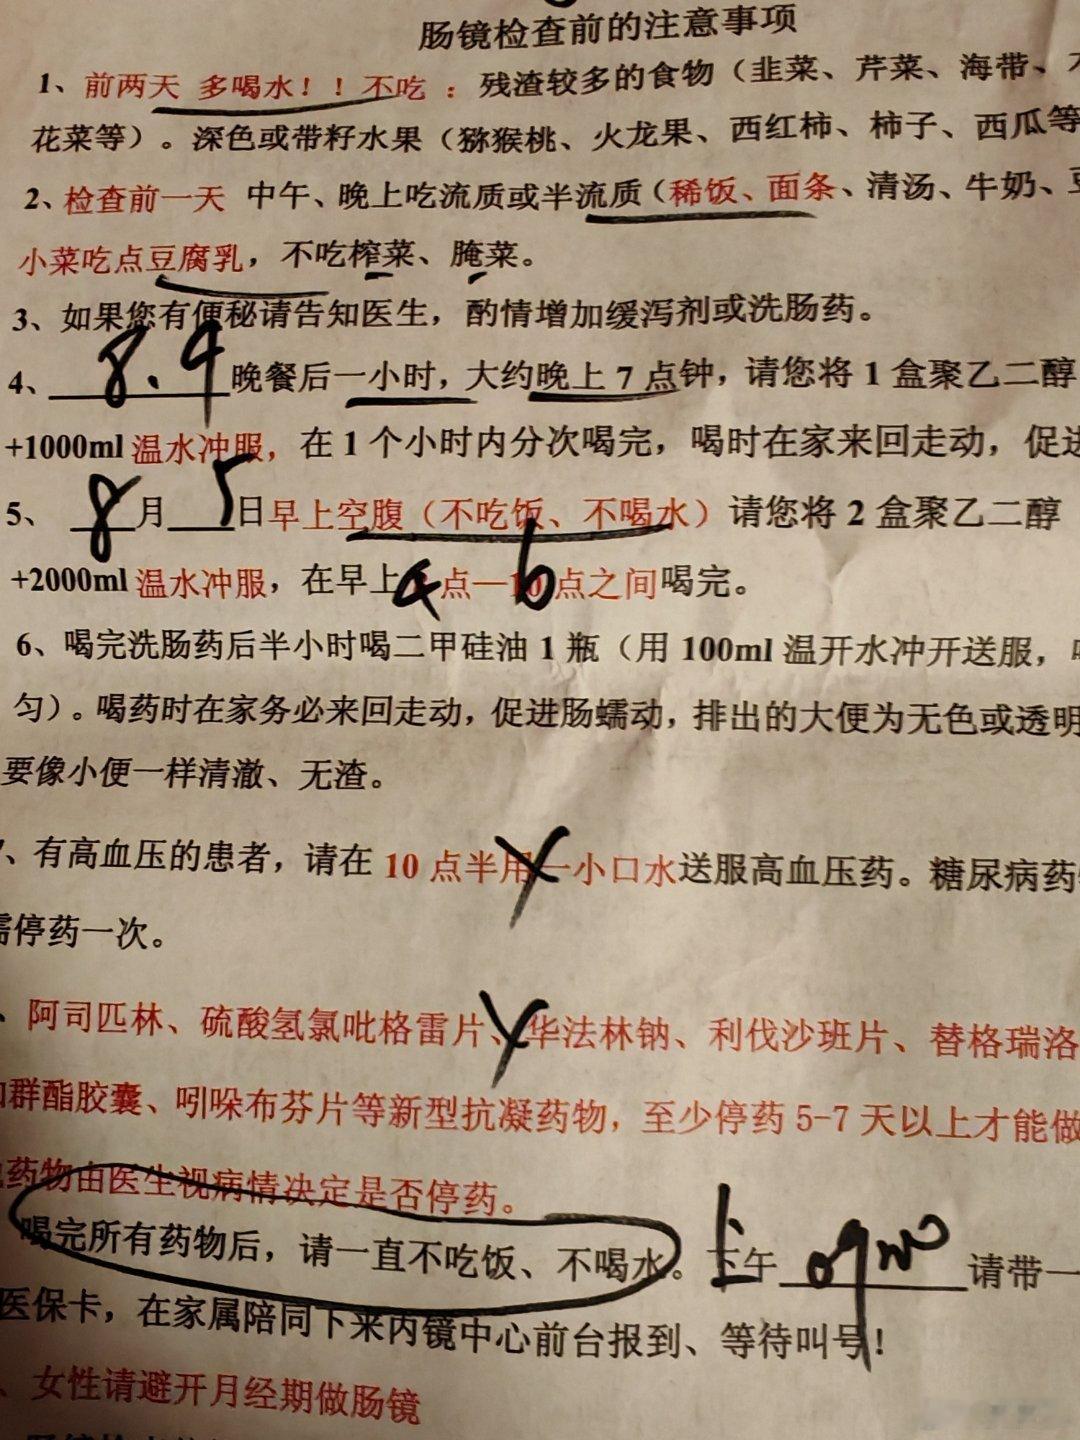 肠镜检查前的注意事项
1、前两天 多喝水！！不吃：残渣较多的食物（韭菜、芹菜、海带、
花菜等）。深色或带籽水果（猕猴桃、火龙果、西红柿、柿子、西瓜等
2、检查前一天 中午、晚上吃流质或半流质（稀饭、面条、清汤、牛奶、
小菜吃点豆腐乳，不吃榨菜、腌菜。
3、如果您有便秘请告知医生，酌情增加缓泻剂或洗肠药。
4、8.4晚餐后一小时，大约晚上7点钟，请您将1盒聚乙二醇
+1000ml温水冲服，在1个小时内分次喝完，喝时在家来回走动，促进
5、8月5日早上空腹（不吃饭、不喝水）请您将2盒聚乙二醇
+2000ml温水冲服，在早上4点—6点之间喝完。
6、喝完洗肠药后半小时喝二甲硅油1瓶（用100ml温开水冲开送服，
匀）。喝药时在家务必来回走动，促进肠蠕动，排出的大便为无色或透明
要像小便一样清澈、无渣。
、有高血压的患者，请在10点半用一小口水送服高血压药。糖尿病药
需停药一次。
、阿司匹林、硫酸氢氯吡格雷片、华法林钠、利伐沙班片、替格瑞洛
加群酯胶囊、吲哚布芬片等新型抗凝药物，至少停药5-7天以上才能做
药物由医生视病情决定是否停药。
喝完所有药物后，请一直不吃饭、不喝水。上午 请带一
医保卡，在家属陪同下来内镜中心前台报到、等待叫号！
、女性请避开月经期做肠镜